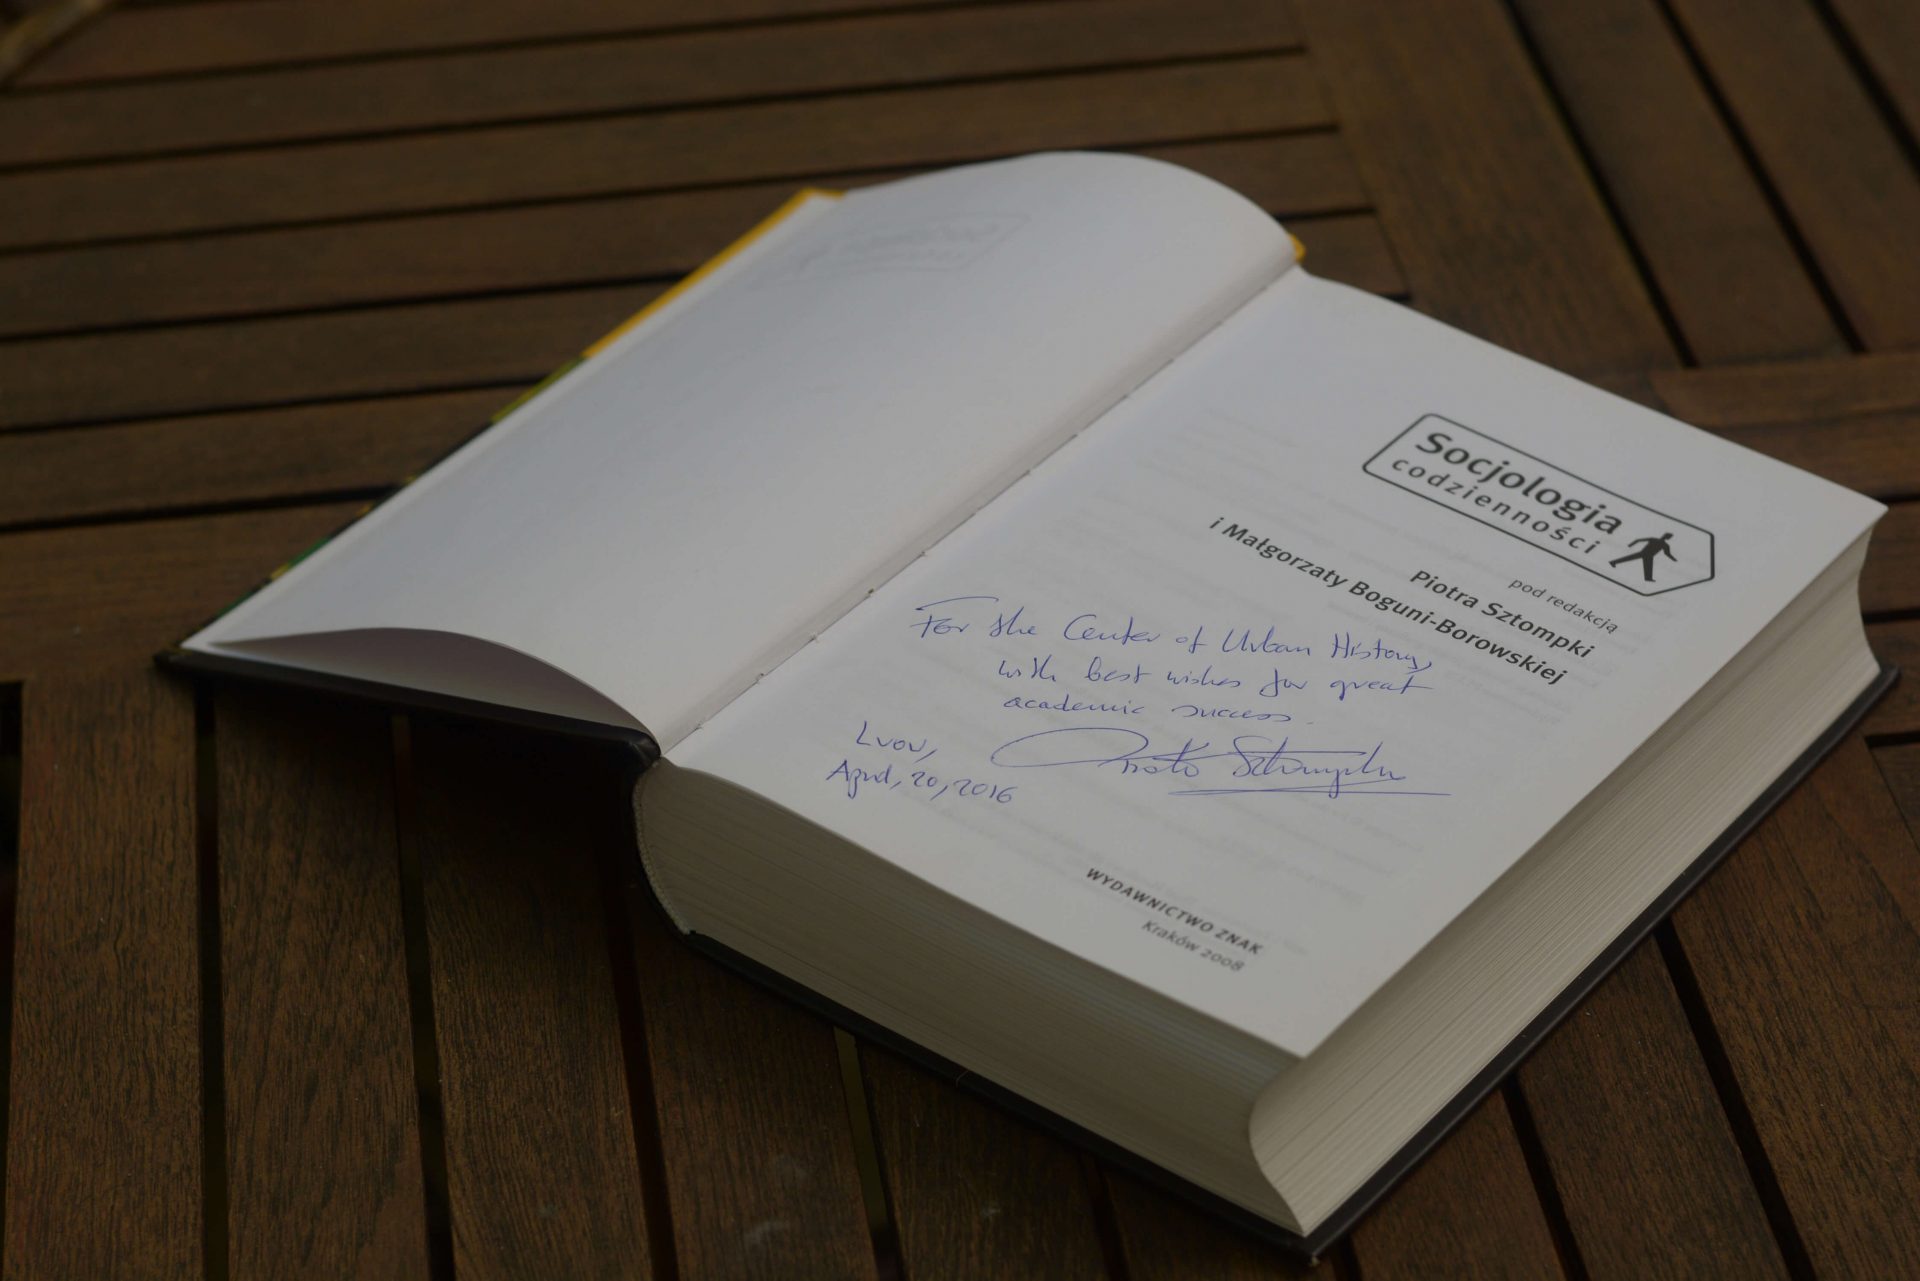 Socjologia
codzienności
pod redakcją
Piotra Sztompki
i Małgorzaty Boguni-Borowskiej
For the Center of Urban History,
with best wishes for great
academic success.
Lvov,
April, 20, 2016
Piotr Sztompka
WYDAWNICTWO ZNAK
Kraków 2008